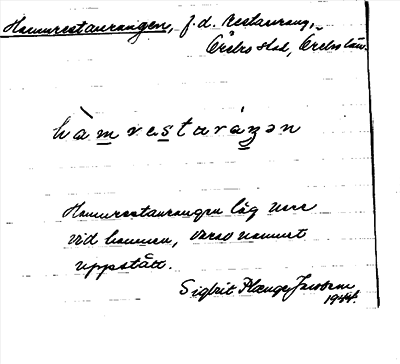 Hamnrestaurangen, f.d. restaurang,
Örebro stad, Örebro län.
hàmrestaráŋən
Hamnrestaurangen låg nere
vid hamnen, varav namnet
uppstått.
Sigbrit Plænge Jacobson
1944.